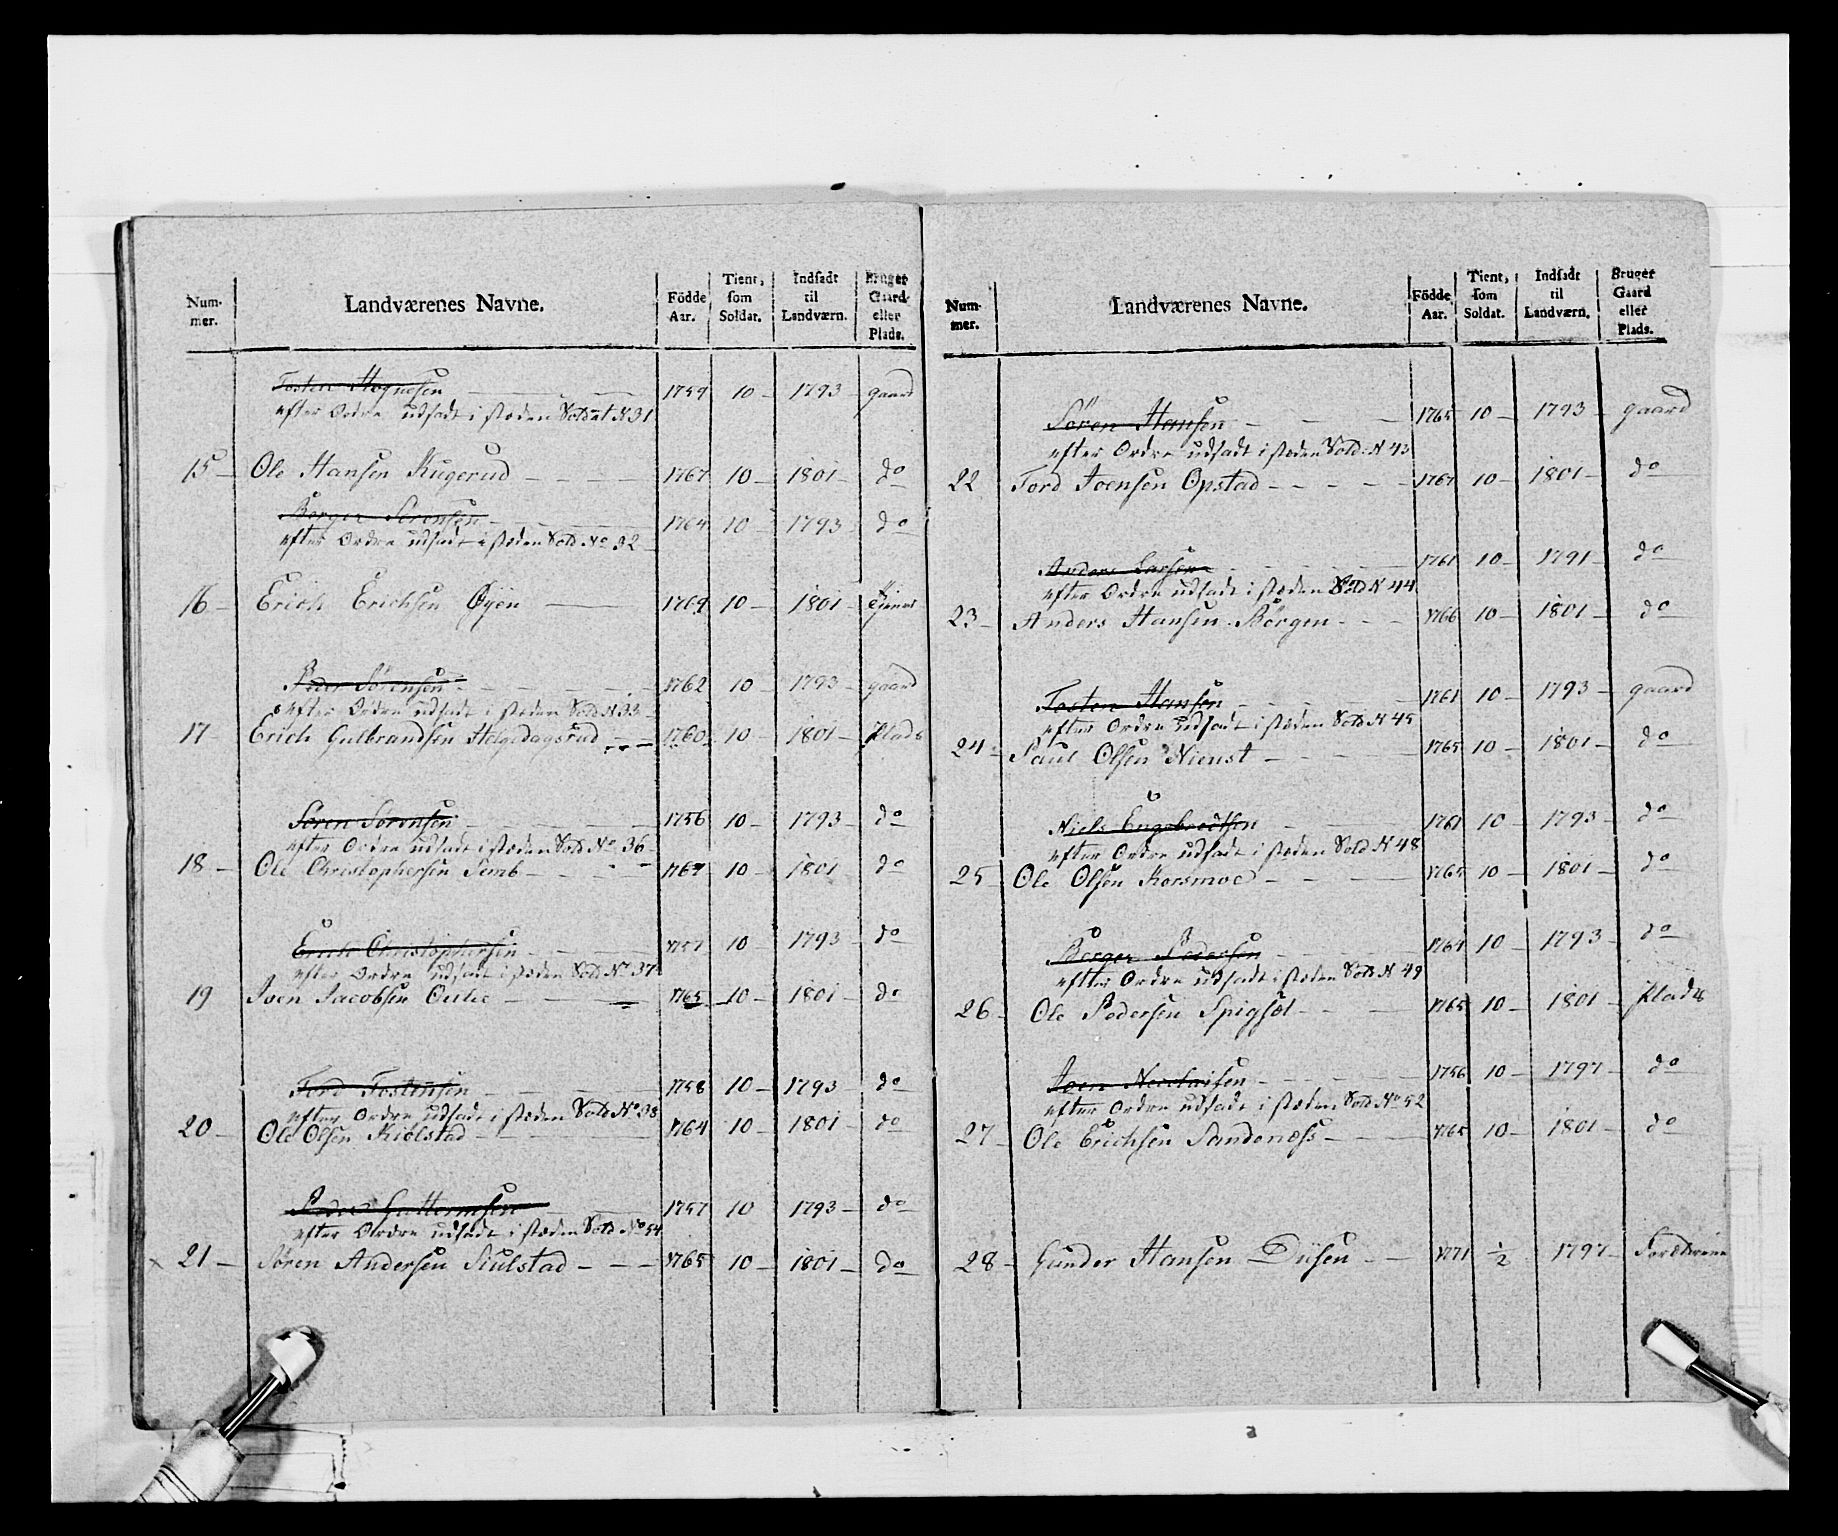 Num-mer. Landværenes Navne. Födde Aar. Tient, som Soldat. Indsadt til Landværn. Bruger Gaard eller Plads.
Tosten Hognesen 1759 10 - 1793 gaard
efter Ordre udsadt i stæden Soldat N 31
15 - Ole Hansen Rugerud - - - - 1767 10 - 1801 - do
Børger Sørensen - - 1764 10 - 1793 do
efter Ordre udsadt i stæden Sold No 32
16 - Erich Erichsen Øyen - 1769 10 - 1801 -
Peder Sörensen - - - - 1762 10 - 1793 - gaard
efter Ordre udsadt i stæden Sold N 33 -
17 - Erich Gulbrandsen Helgedagsrud - - 1760 10 - 1801 - Plads
Sören Sörensen - - - 1756 10 - 1793 - do
efter Ordre udsadt i stæden Sold No 36 -
18 - Ole Christophersen Semb - - - 1767 10 - 1801 do
Erich Christophersen - - - 1757 10 - 1793 - do
efter Ordre udsadt i stæden Sold No 37
19 Joen Jacobsen - - 1765 10 - 1801 - do
Tord Tostensen - - - 1758 10 - 1793 - do
efter Ordre udsadt i stæden Sold No 38
20 - Ole Olsen Kiölstad - - - 1764 10 - 1801 - do
Peder Guttormsen - - 1757 10 1793 - do
efter Ordre udsadt i stæden Sold No 54
x 21 - Sören Andersen Kiulstad - - - 1765 10 - 1801 - do
Num-mer. Landværenes Navne. Födde Aar. Tient, som Soldat. Indsadt til Landværn. Bruger Gaard eller Plads.
Sören Hansen - - - 1765 10 - 1793 - gaard
efter Ordre udsadt i stæden Sold N 43
22 Tord Joensen Opstad - - - - 1767 10 - 1801 - do
Anders Larsen - - - 1761 10 - 1791 - do
efter Ordre udsadt i stæden Sold N 44
23 - Anders Hansen Börgen - - - 1766 10 - 1801 - do
Tosten Hansen - - - 1761 10 - 1793 - gaard
efter Ordre udsadt i stæden Sold N 45
24 - Paul Olsen Nienst - - - 1765 10 - 1801 - do
Niels Engebredtsen - - 1761 10 - 1793 - do
efter Ordre udsadt i stæden Sold N 48
25 - Ole Olsen Korsmoe - - - 1765 10 - 1801 - do
Børger Pedersen - - - 1764 10 - 1793 - do
efter Ordre udsadt i stæden Sold N 49
26 - Ole Pedersen Spigset - - - 1765 10 - 1801 - Plads
Joen Nicolaisen - - - 1756 10 - 1797 - do
efter Ordre udsadt i stæden Sold No 52
27 - Ole Erichsen Sandenæss - - - 1765 10 - 1801 - do
28 - Gunder Hansen Diisen - - 1771 1/2 - 1797 -